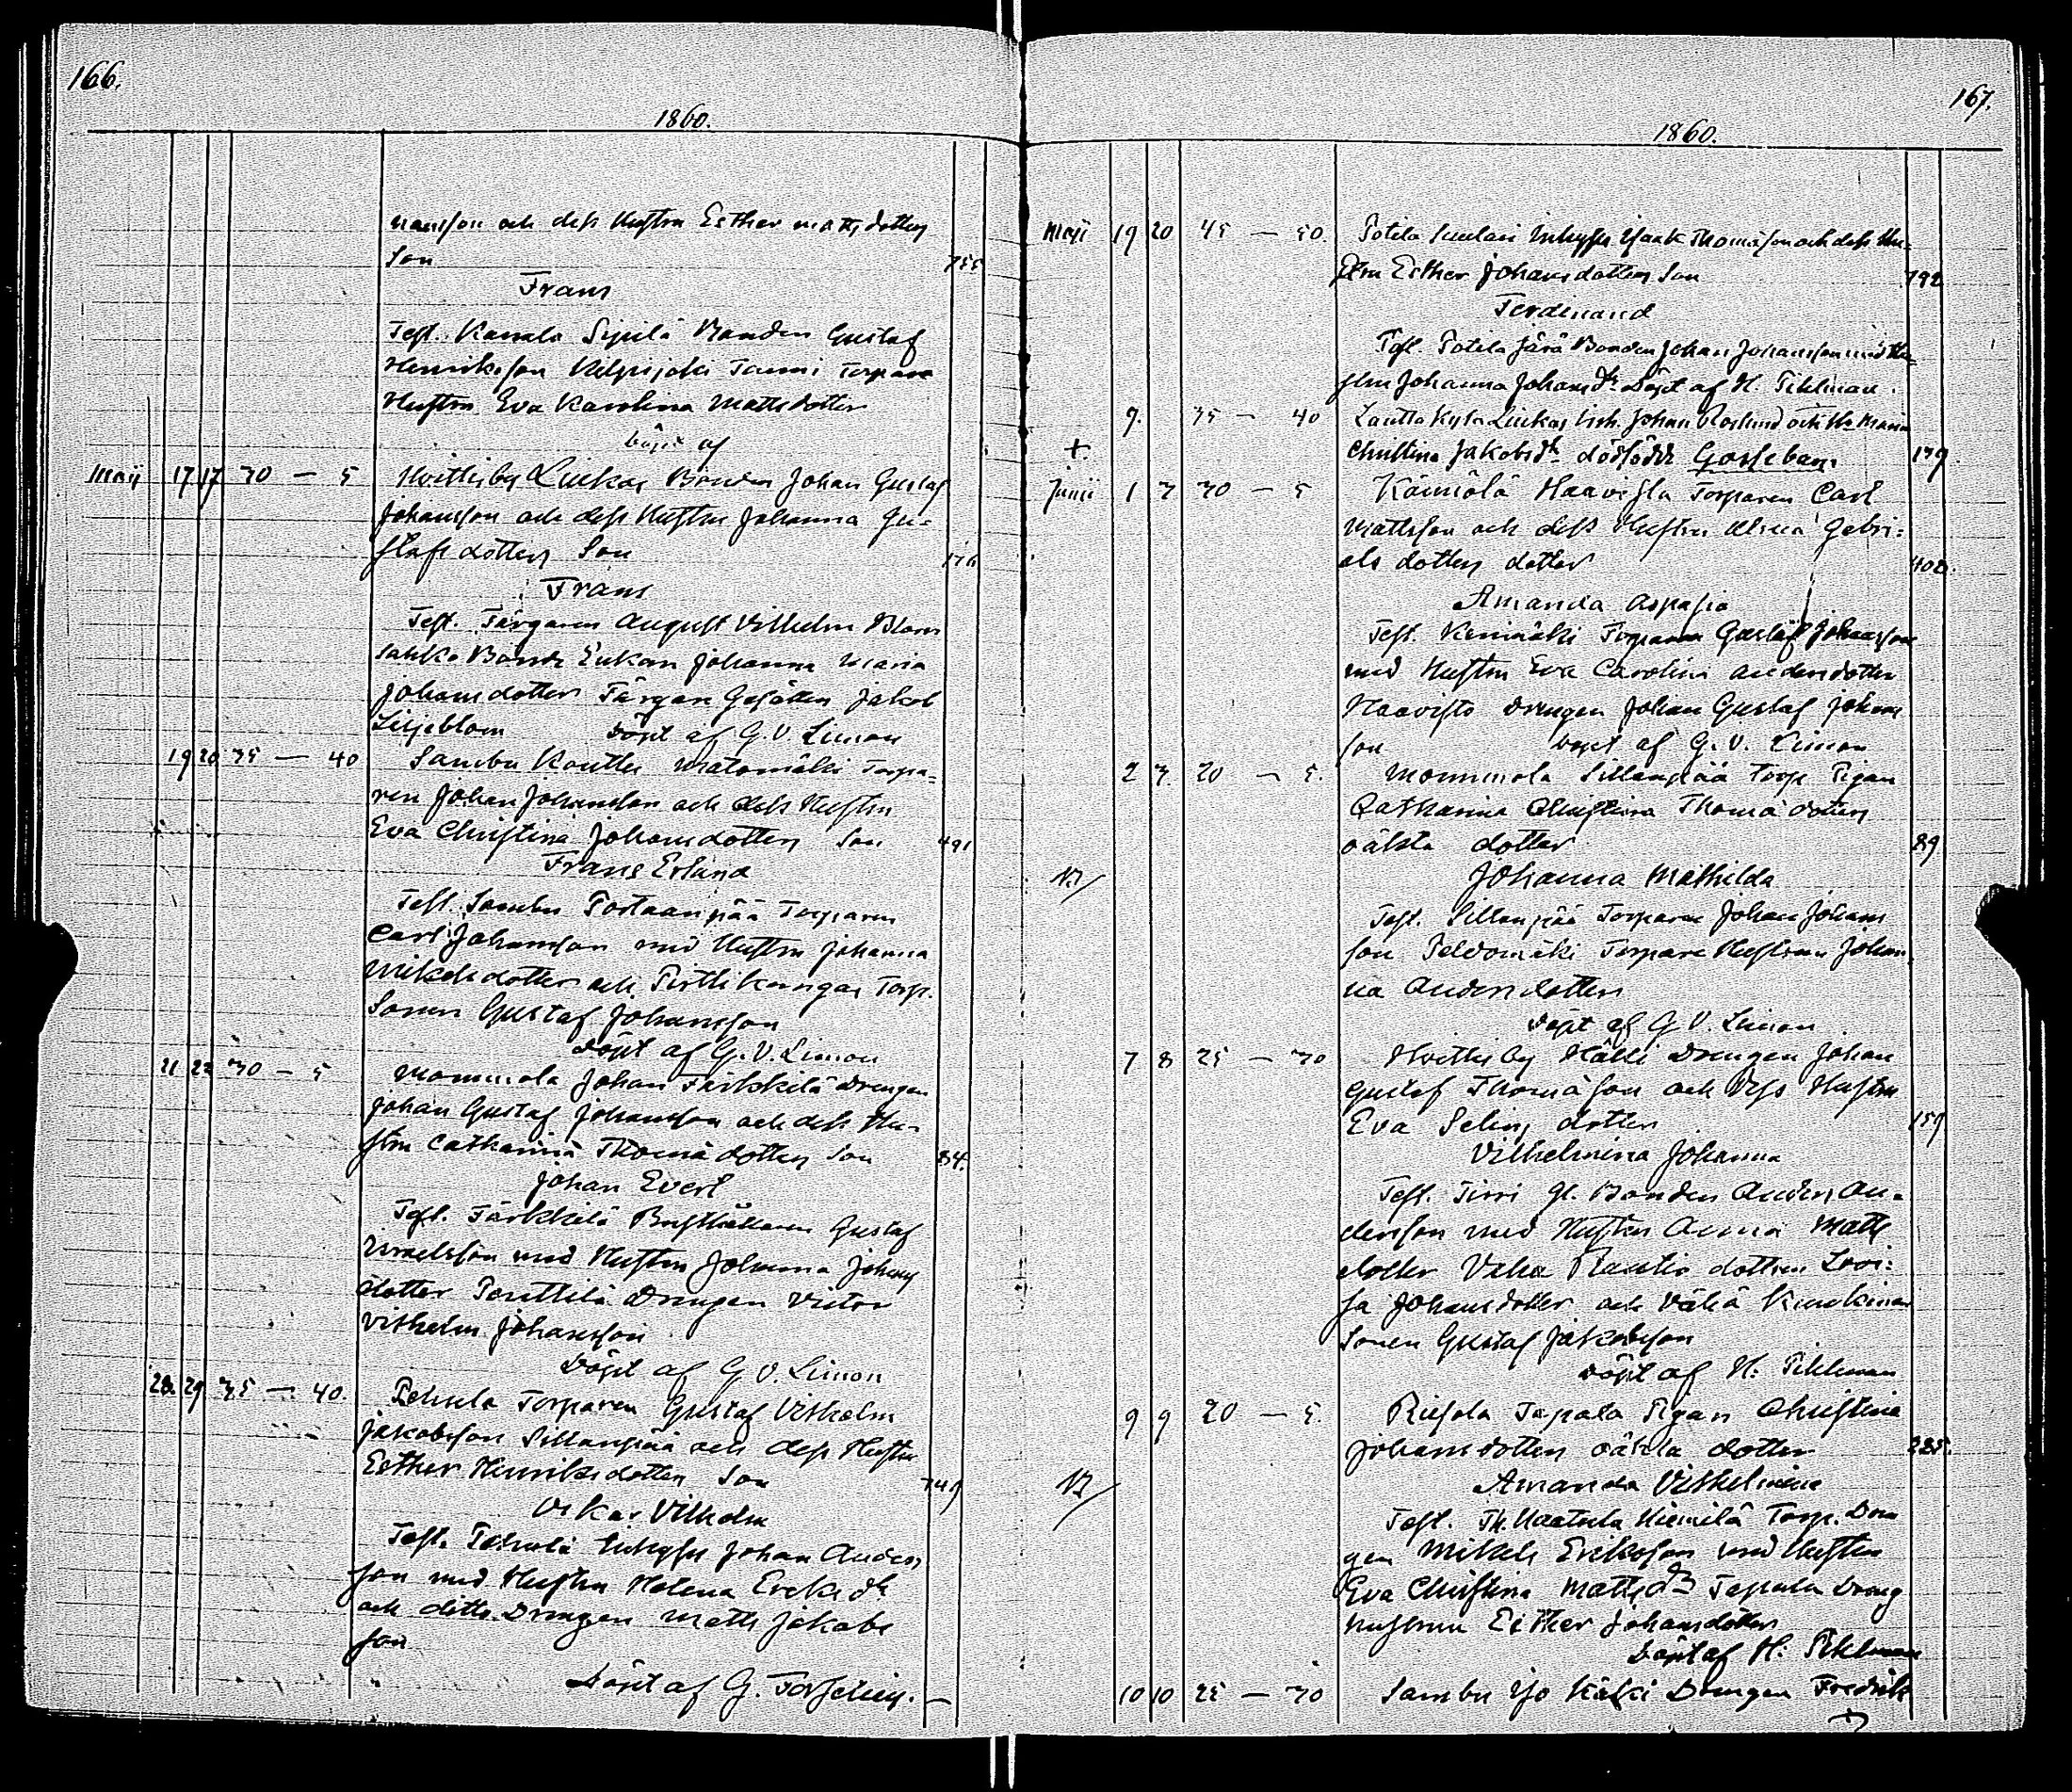 166.
1860.
son och dess Hustru Esther Mattsdotters
Son 755
Frans
Test. Karsala Sipilä Bonden Gustaf
Henriksson Kilpijoki Tammi Torpare
Hustrun Eva Karolina Mattsdotter
Döpt af
Maij 17 17 30 — 5 Hvittisby Liukas Bonden Johan Gustaf
Johansson och dess Hustru Johanna Gu-
stafsdotters Son 176
Frans
Test. Färgaren August Vilhelm Blom
Bonde Enkan Johanna Maria
Johansdotter Färgare Gesällen Jakob
Liljeblom Döpt af G. V. Limon
19 20 35 — 40 Sambu Koutla Matomäki Torpa-
ren Johan Johansson och dess Hustru
Eva Christina Johansdotters Son 491
Frans Erland
Test. Sambu Portaanpää Torparen
Carl Johansson med Hustru Johanna
Mikelsdotter och Pirttikangas Torp.
Sonen Gustaf Johansson
Döpt af G. V. Limon
21 22 30 — 5 Mommola Johan Färkkilä Drengen
Johan Gustaf Johansson och dess Hu-
stru Catharina Thomädotters Son 84.
Johan Evert
Test. Färkkilä Gustaf
med Hustru Johanna Johans
dotter Penttilä Drengen Victor
Vilhelm Johansson
Döpt af G. V. Limon
28. 29 35 — 40. Pehula Torparen Gustaf Vilhelm
Jakobsson Sillanpää och dess Hustru
Esther Henriksdotters Son 749
Oskar Vilhelm
Test. Pehula Inhyses Johan Anders
son med Hustru Helena Ericks dr
och ditto Drengen Matts Jakobs
son
Döpt af G. Forselius. —
167.
1860.
Maji 19 20 45 — 50. Potila Suulari Inhyses Isaak Thomasson och dess Hu-
stru Esther Johansdotters Son 792
Ferdinand
Test. Potila Järä Bonden Johan Johansson med Hu-
stru Johanna Johans dr Döpt af H. Pihlman.
9. 35 — 40 Lautta Kylä Liukas Inh. Johan Roslund och Ha Maria
+. Christina Jakobs dr dödfödde Gossebarn 179.
Junii 1 3 30 — 5 Kännölä Haavisto Torparen Carl
Mattsson och dess Hustru Gabri-
els dotters dotter 402.
Amanda Aspasia
Test. Torparen Gustaf Johansson
med Hustru Eva Carolina Andersdotter
Haavisto Drengen Johan Gustaf Johans
son Döpt af G. V. Limon
2 3. 20 — 5. Mommola Sillanpää Torp. Pigan
Catharina Christina Thomädotters
oäkta dotter 89
Johanna Mathilda
Test. Sillanpää Torparen Johan Johans
son Peldomäki Torpare Hustrun Johan-
na Andersdotter
Döpt af G. V. Limon
7 8 25 — 30 Hvittisby Hälli Drengen Johan
Gustaf Thomäson och dess Hustru
Eva Selins dotter 159
Vilhelmina Johanna
Test. Jirri Gl. Bonden Anders An-
dersson med Hustru Anna Matts
dotter Vaha Rautio dottren Lovi-
sa Johansdotter och Vähä
Sonen Gustaf Jakobsson
Döpt af H. Pihlman
9 9 20 — 5. Riesola Tapala Pigan Christina
Johansdotters oäkta dotter 225.
Amanda Vilhelmina
Test. Th. Niemilä Torp. Dren
gen Mikels Ericksson med Hustru
Eva Christina Matts dr Tapala Dreng
hustrun Esther Johansdotter
Döpt af H. Pihlman
10 10 25 — 30 Sambu Iso Käkki Drengen Fredrik